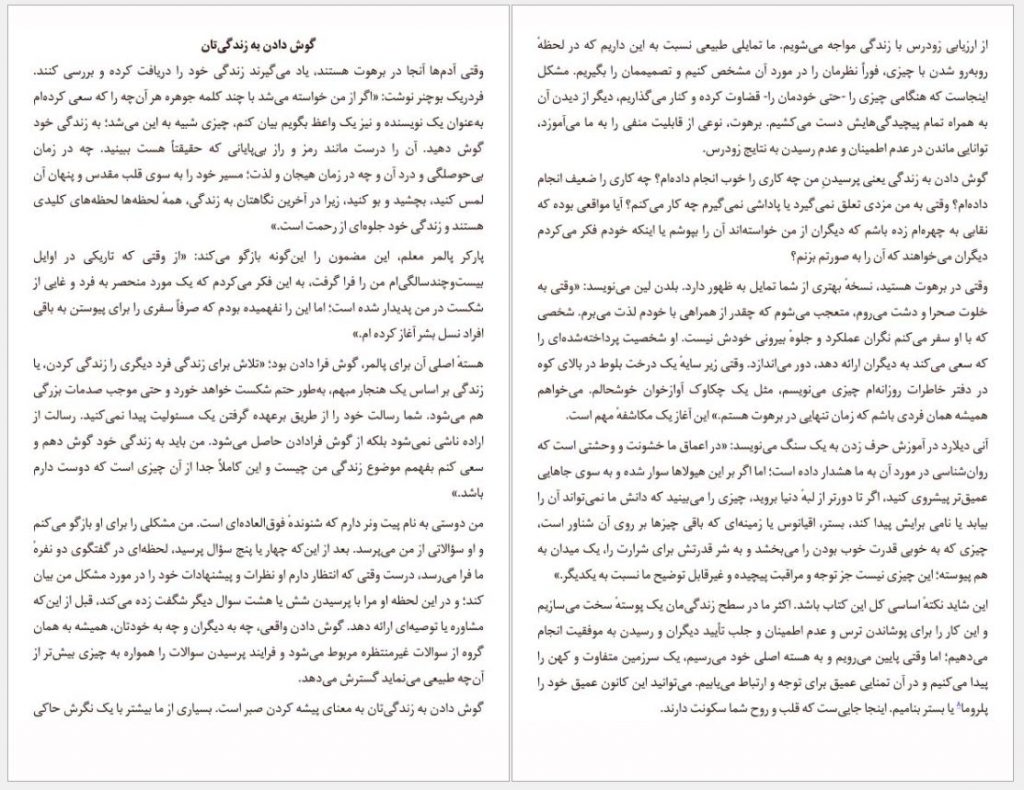 گوش دادن به زندگی‌تان
وقتی آدم‌ها آنجا در برهوت هستند، یاد می‌گیرند زندگی خود را دریافت کرده و بررسی کنند.
فردریک بوچنر نوشت: «اگر از من خواسته می‌شد با چند کلمه جوهره هر آن‌چه را که سعی کرده‌ام
به‌عنوان یک نویسنده و نیز یک واعظ بگویم بیان کنم، چیزی شبیه به این می‌شد؛ به زندگی خود
گوش دهید. آن را درست مانند رمز و راز بی‌پایانی که حقیقتاً هست ببینید. چه در زمان
بی‌حوصلگی و درد آن و چه در زمان هیجان و لذت؛ مسیر خود را به سوی قلب مقدس و پنهان آن
لمس کنید، بچشید و بو کنید، زیرا در آخرین نگاهتان به زندگی، همهٔ لحظه‌ها لحظه‌های کلیدی
هستند و زندگی خود جلوه‌ای از رحمت است.»
پارکر پالمر معلم، این مضمون را این‌گونه بازگو می‌کند: «از وقتی که تاریکی در اوایل
بیست‌وچندسالگی‌ام من را فرا گرفت، به این فکر می‌کردم که یک مورد منحصر به فرد و غایی از
شکست در من پدیدار شده است؛ اما این را نفهمیده بودم که صرفاً سفری را برای پیوستن به باقی
افراد نسل بشر آغاز کرده ام.»
هستهٔ اصلی آن برای پالمر، گوش فرا دادن بود؛ «تلاش برای زندگی فرد دیگری را زندگی کردن، یا
زندگی بر اساس یک هنجار مبهم، به‌طور حتم شکست خواهد خورد و حتی موجب صدمات بزرگی
هم می‌شود. شما رسالت خود را از طریق برعهده گرفتن یک مسئولیت پیدا نمی‌کنید. رسالت از
اراده ناشی نمی‌شود بلکه از گوش فرادادن حاصل می‌شود. من باید به زندگی خود گوش دهم و
سعی کنم بفهمم موضوع زندگی من چیست و این کاملاً جدا از آن چیزی است که دوست دارم
باشد.»
من دوستی به نام پیت ونر دارم که شنوندهٔ فوق‌العاده‌ای است. من مشکلی را برای او بازگو می‌کنم
و او سؤالاتی از من می‌پرسد. بعد از این‌که چهار یا پنج سؤال پرسید، لحظه‌ای در گفتگوی دو نفرهٔ
ما فرا می‌رسد، درست وقتی که انتظار دارم او نظرات و پیشنهادات خود را در مورد مشکل من بیان
کند؛ و در این لحظه او مرا با پرسیدن شش یا هشت سوال دیگر شگفت زده می‌کند، قبل از این‌که
مشاوره یا توصیه‌ای ارائه دهد. گوش دادن واقعی، چه به دیگران و چه به خودتان، همیشه به همان
گروه از سوالات غیرمنتظره مربوط می‌شود و فرایند پرسیدن سوالات را همواره به چیزی بیش‌تر از
آن‌چه طبیعی می‌نماید گسترش می‌دهد.
گوش دادن به زندگی‌تان به معنای پیشه کردن صبر است. بسیاری از ما بیشتر با یک نگرش حاکی
از ارزیابی زودرس با زندگی مواجه می‌شویم. ما تمایلی طبیعی نسبت به این داریم که در لحظهٔ
روبه‌رو شدن با چیزی، فوراً نظرمان را در مورد آن مشخص کنیم و تصمیممان را بگیریم. مشکل
اینجاست که هنگامی چیزی را -حتی خودمان را- قضاوت کرده و کنار می‌گذاریم، دیگر از دیدن آن
به همراه تمام پیچیدگی‌هایش دست می‌کشیم. برهوت، نوعی از قابلیت منفی را به ما می‌آموزد،
توانایی ماندن در عدم اطمینان و عدم رسیدن به نتایج زودرس.
گوش دادن به زندگی یعنی پرسیدنِ من چه کاری را خوب انجام داده‌ام؟ چه کاری را ضعیف انجام
داده‌ام؟ وقتی به من مزدی تعلق نمی‌گیرد یا پاداشی نمی‌گیرم چه کار می‌کنم؟ آیا مواقعی بوده که
نقابی به چهره‌ام زده باشم که دیگران از من خواسته‌اند آن را بپوشم یا اینکه خودم فکر می‌کردم
دیگران می‌خواهند که آن را به صورتم بزنم؟
وقتی در برهوت هستید، نسخهٔ بهتری از شما تمایل به ظهور دارد. بلدن لین می‌نویسد: «وقتی به
خلوت صحرا و دشت می‌روم، متعجب می‌شوم که چقدر از همراهی با خودم لذت می‌برم. شخصی
که با او سفر می‌کنم نگران عملکرد و جلوهٔ بیرونی خودش نیست. او شخصیت پرداخته‌شده‌ای را
که سعی می‌کند به دیگران ارائه دهد، دور می‌اندازد. وقتی زیر سایهٔ یک درخت بلوط در بالای کوه
در دفتر خاطرات روزانه‌ام چیزی می‌نویسم، مثل یک چکاوک آوازخوان خوشحالم. می‌خواهم
همیشه همان فردی باشم که زمان تنهایی در برهوت هستم.» این آغاز یک مکاشفهٔ مهم است.
آنی دیلارد در آموزش حرف زدن به یک سنگ می‌نویسد: «در اعماق ما خشونت و وحشتی است که
روان‌شناسی در مورد آن به ما هشدار داده است؛ اما اگر بر این هیولاها سوار شده و به سوی جاهایی
عمیق‌تر پیشروی کنید، اگر تا دورتر از لبهٔ دنیا بروید، چیزی را می‌بینید که دانش ما نمی‌تواند آن را
بیابد یا نامی برایش پیدا کند، بستر، اقیانوس یا زمینه‌ای که باقی چیزها بر روی آن شناور است،
چیزی که به خوبی قدرت خوب بودن را می‌بخشد و به شر قدرتش برای شرارت را، یک میدان به
هم پیوسته؛ این چیزی نیست جز توجه و مراقبت پیچیده و غیرقابل توضیح ما نسبت به یکدیگر.»
این شاید نکتهٔ اساسی کل این کتاب باشد. اکثر ما در سطح زندگی‌مان یک پوستهٔ سخت می‌سازیم
و این کار را برای پوشاندن ترس و عدم اطمینان و جلب تأیید دیگران و رسیدن به موفقیت انجام
می‌دهیم؛ اما وقتی پایین می‌رویم و به هسته اصلی خود می‌رسیم، یک سرزمین متفاوت و کهن را
پیدا می‌کنیم و در آن تمنایی عمیق برای توجه و ارتباط می‌یابیم. می‌توانید این کانون عمیق خود را
پلروما⁸ یا بستر بنامیم. اینجا جایی‌ست که قلب و روح شما سکونت دارند.